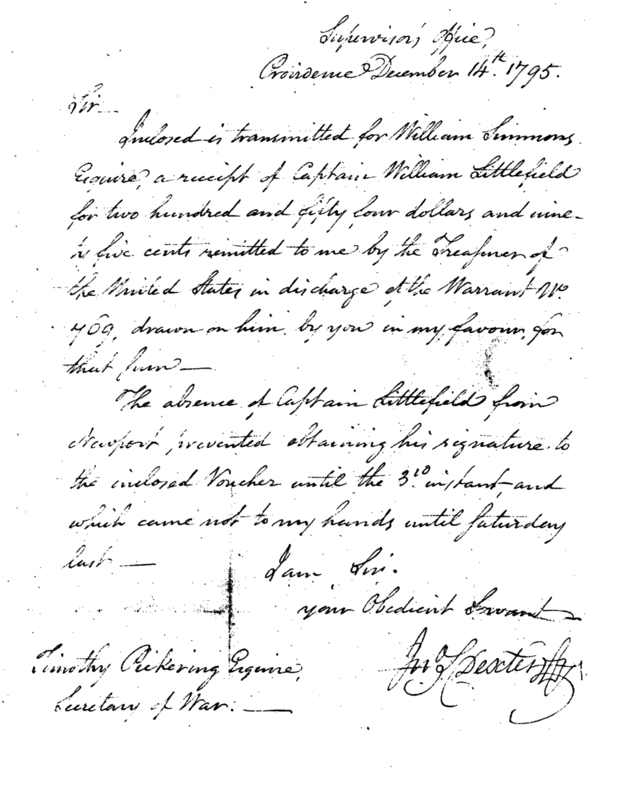 Supervisor's Office,
Providence December 14th. 1795.
Sir
Inclosed is transmitted for William Simmons
Esquire, a receipt of Captain William Littlefield
for two hundred and fifty four dollars and nine-
ty five cents remitted to me by the Treasurer of
the United States in discharge of the Warrant No.
469, drawn on him by you in my favour, for
that Sum —
The absence of Captain Littlefield from
Newport, prevented obtaining his signature to
the inclosed Voucher until the 3d. instant, and
which came not to my hands until Saturday
last —
I am Sir.
your Obedient Servant
Jno. S. Dexter
Timothy Pickering Esquire,
Secretary of War. —